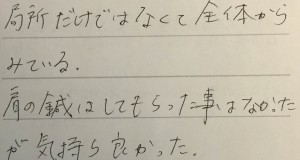 局所だけではなくて全体から
みている.
肩の鍼はしてもらった事はなかった
が気持ち良かった.